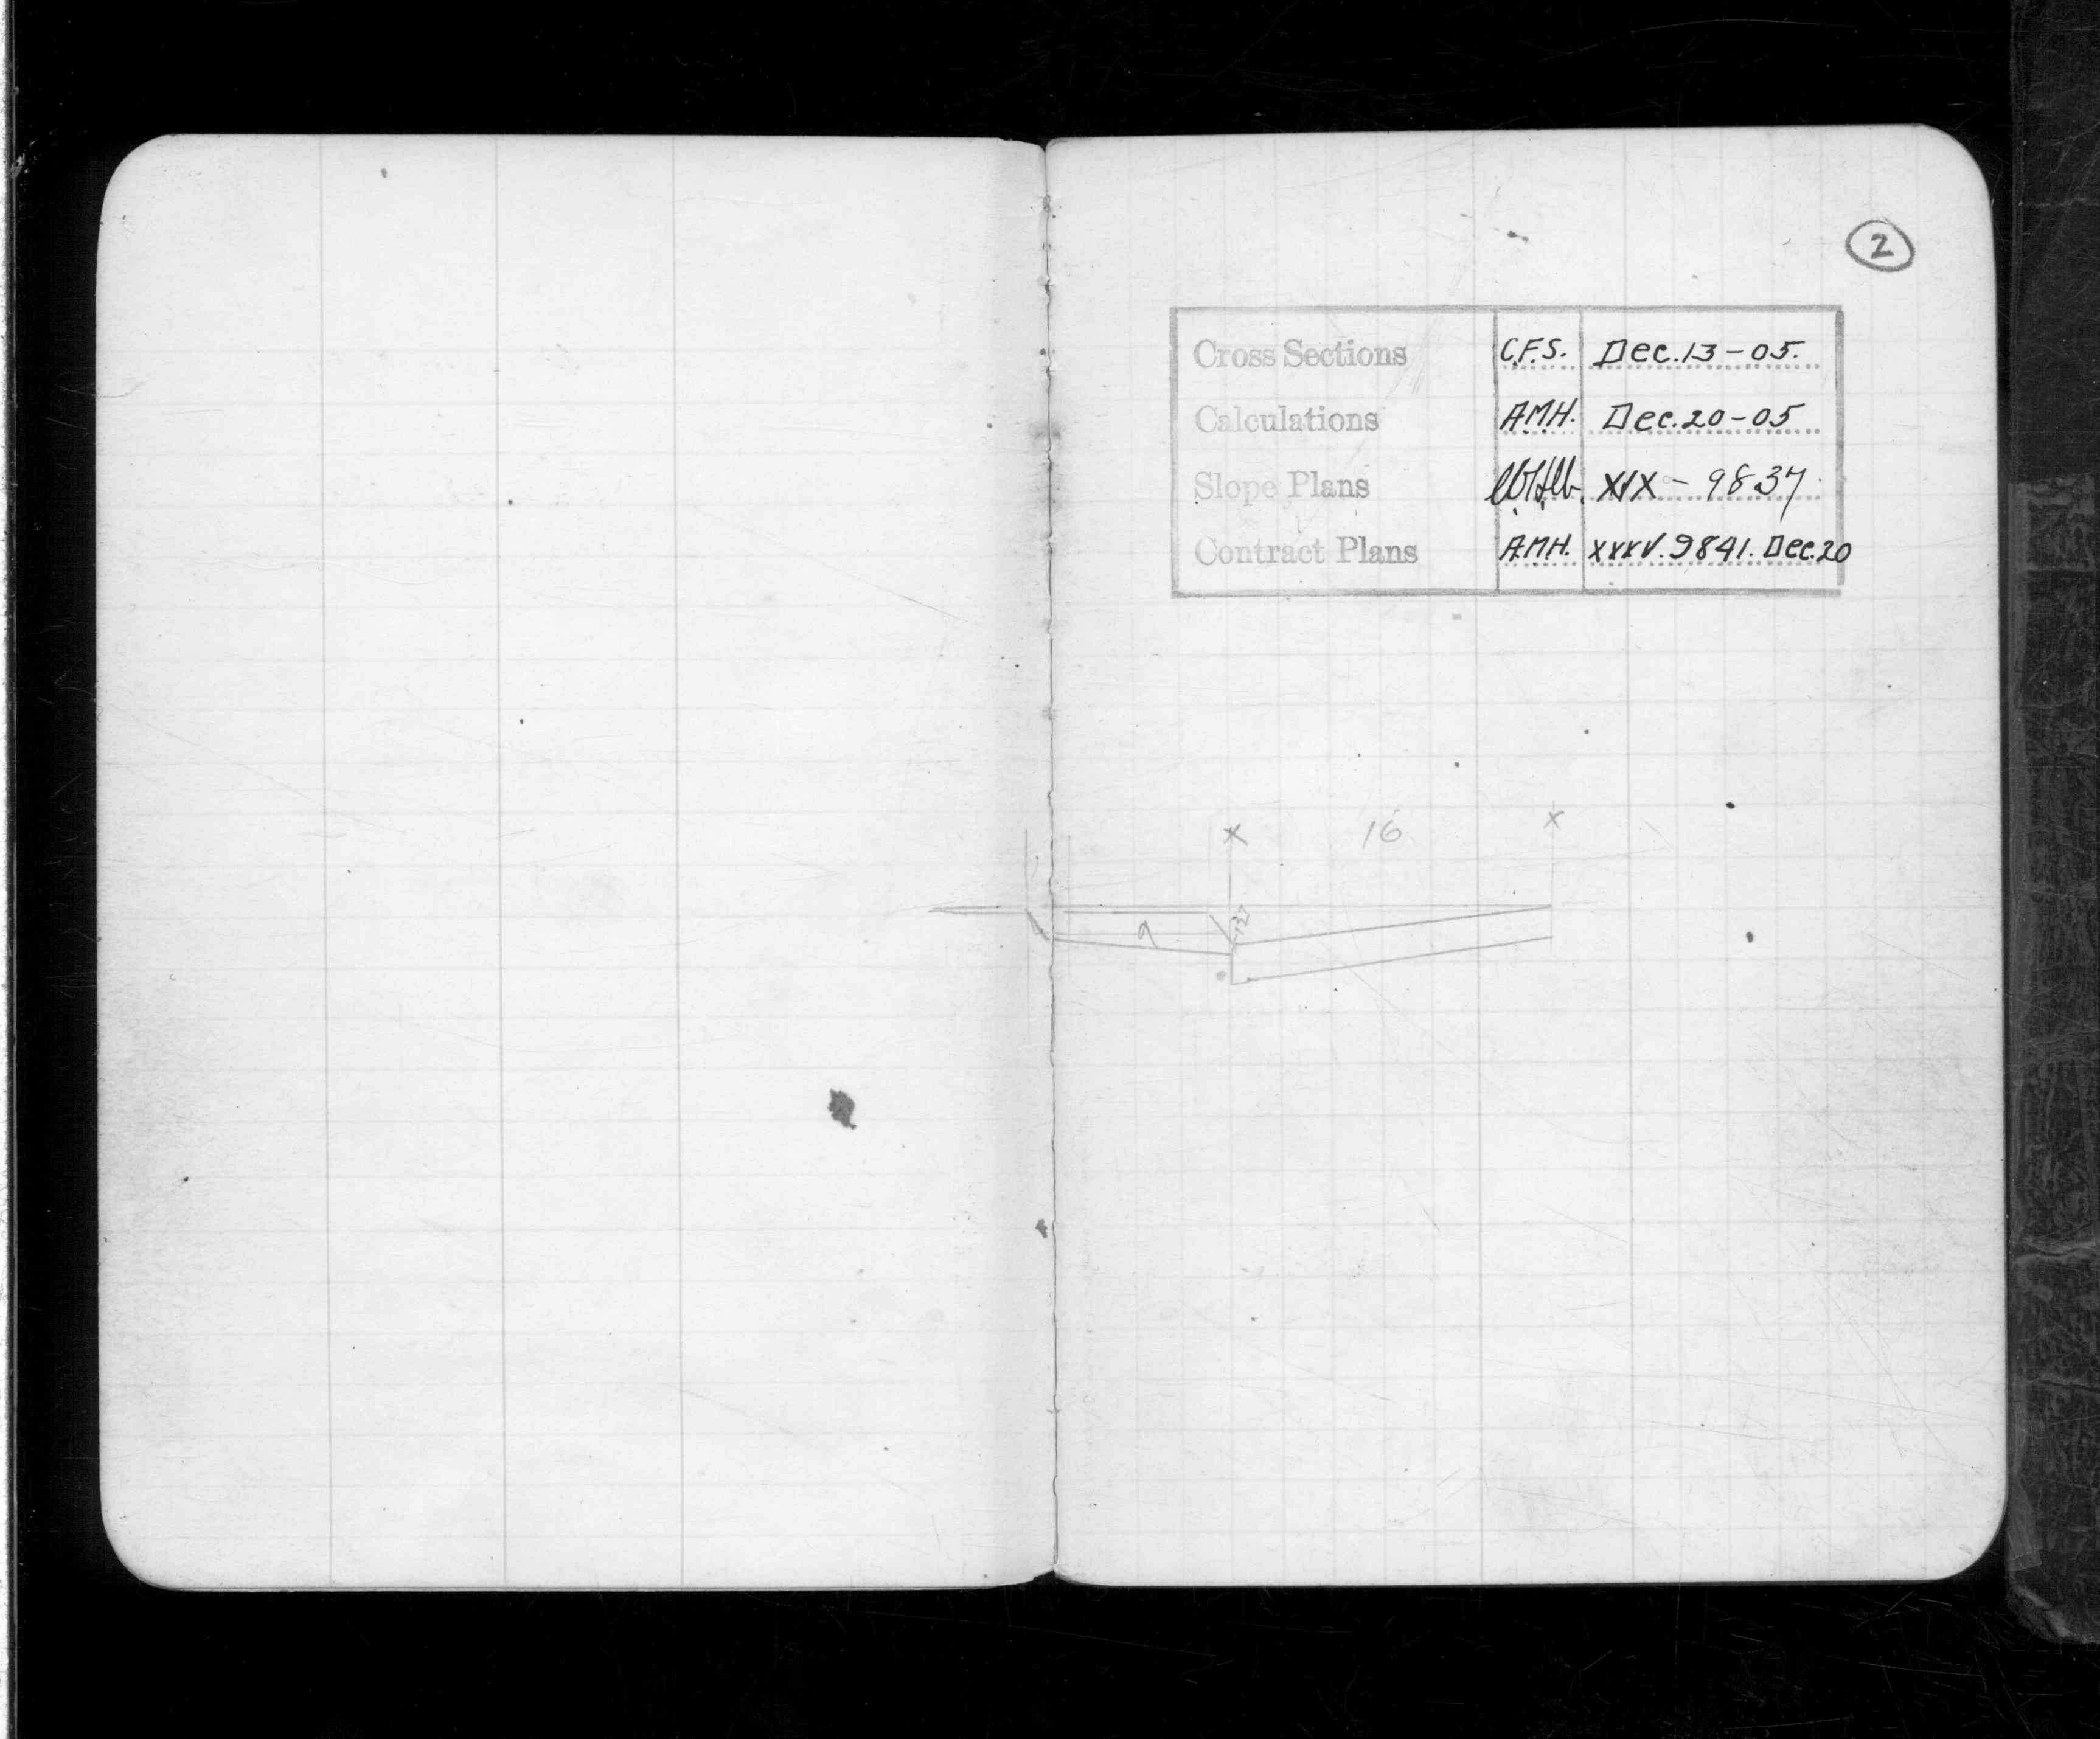 2
Cross Sections C.F.S. Dec. 13-05.
Calculations A.M.H. Dec. 20-05
Slope Plans XIX - 9837
Contract Plans A.M.H. XXXV. 9841. Dec. 20
x 16 x
9